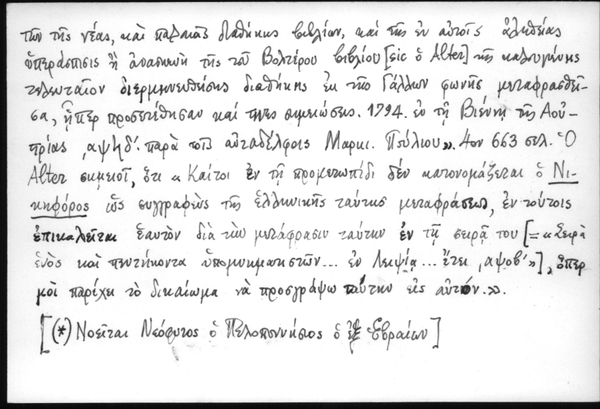 τῶν τῆς νέας, καὶ παλαιᾶς διαθήκης βιβλίων, καὶ τῆς ἐν αὐτοῖς ἀληθείας
ὑπεράσπισις ἢ ἀνασκευὴ τῆς τοῦ Βολτέρου βιβλίου [sic ὁ Alter] τῆς
τελευταῖον διερμηνευθείσης διαθήκης ἐκ τῆς Γάλλων φωνῆς μεταφρασθεῖ-
σα, ᾗπερ προσετέθησαν καί τινες σημειώσεις. 1794. ἐν τῇ Βιέννῃ τῆς Αού-
στρίας ͵αψҁδ΄. παρὰ τοῖς αὐταδέλφοις Μαρκι. Πούλιου». 4ον 663 σελ. Ὁ
Alter σημειοῖ, ὅτι «Καίτοι ἐν τῇ προμετωπίδι δὲν κατονομάζεται ὁ Νι-
κηφόρος ὡς συγγραφεὺς τῆς ἑλληνικῆς ταύτης μεταφράσεως, ἐν τούτοις
ἐπικαλεῖται ἑαυτὸν διὰ τὴν μετάφρασιν ταύτην ἐν τῇ σειρᾷ του [= «Σειρὰ
ἑνὸς καὶ πεντήκοντα ὑπομνηματιστῶν... ἐν Λειψίᾳ... ἔτει ͵αψοβ΄»], ὅπερ
μοὶ παρέχει τὸ δικαίωμα νὰ προσγράψω ταύτην εἰς αὐτόν.».
[(*) Νοεῖται Νεόφυτος ὁ Πελοποννήσιος ὁ ἐξ Ἑβραίων]